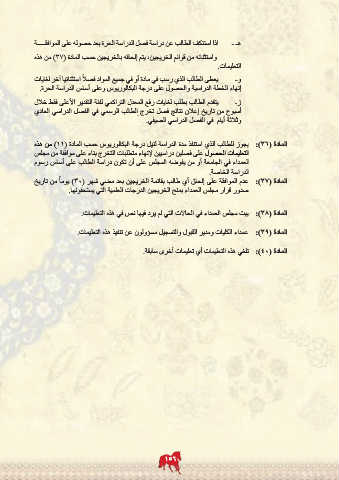 هـ - اذا استنكف الطالب عن دراسة فصل الدراسة الحرة بعد حصوله على الموافقـــــة
واستثنائه من قوائم الخريجين، يتم إلحاقه بالخريجين حسب المادة (٣٧) من هذه
التعليمات.
و- يعطى الطالب الذي رسب في مادة أو في جميع المواد فصلاً استثنائيا آخر لغايات
إنهاء الخطة الدراسية والحصول على درجة البكالوريوس وعلى أساس الدراسة الحرة.
ز- يتقدم الطالب بطلب لغايات رفع المعدل التراكمي لفئة التقدير الأعلى فقط خلال
أسبوع من تاريخ إعلان نتائج فصل تخرج الطالب الرسمي في الفصل الدراسي العادي
وثلاثة أيام في الفصل الدراسي الصيفي.
المادة (٣٦): يجوز للطالب الذي استنفذ مدة الدراسة لنيل درجة البكالوريوس حسب المادة (١١) من هذه
التعليمات الحصول على فصلين دراسيين لإنهاء متطلبات التخرج بناء على موافقة من مجلس
العمداء في الجامعة أو من يفوضه المجلس على أن تكون دراسة الطالب على أساس رسوم
الدراسة الخاصة.
المادة (٣٧): عدم الموافقة على إلحاق أي طالب بقائمة الخريجين بعد مضي شهر (٣٠) يوماً من تاريخ
صدور قرار مجلس العمداء بمنح الخريجين الدرجات العلمية التي يستحقونها.
المادة (٣٨): يبت مجلس العمداء في الحالات التي لم يرد فيها نص في هذه التعليمات.
المادة (٣٩): عمداء الكليات ومدير القبول والتسجيل مسؤولون عن تنفيذ هذه التعليمات.
المادة (٤٠): تلغي هذه التعليمات أي تعليمات أخرى سابقة.